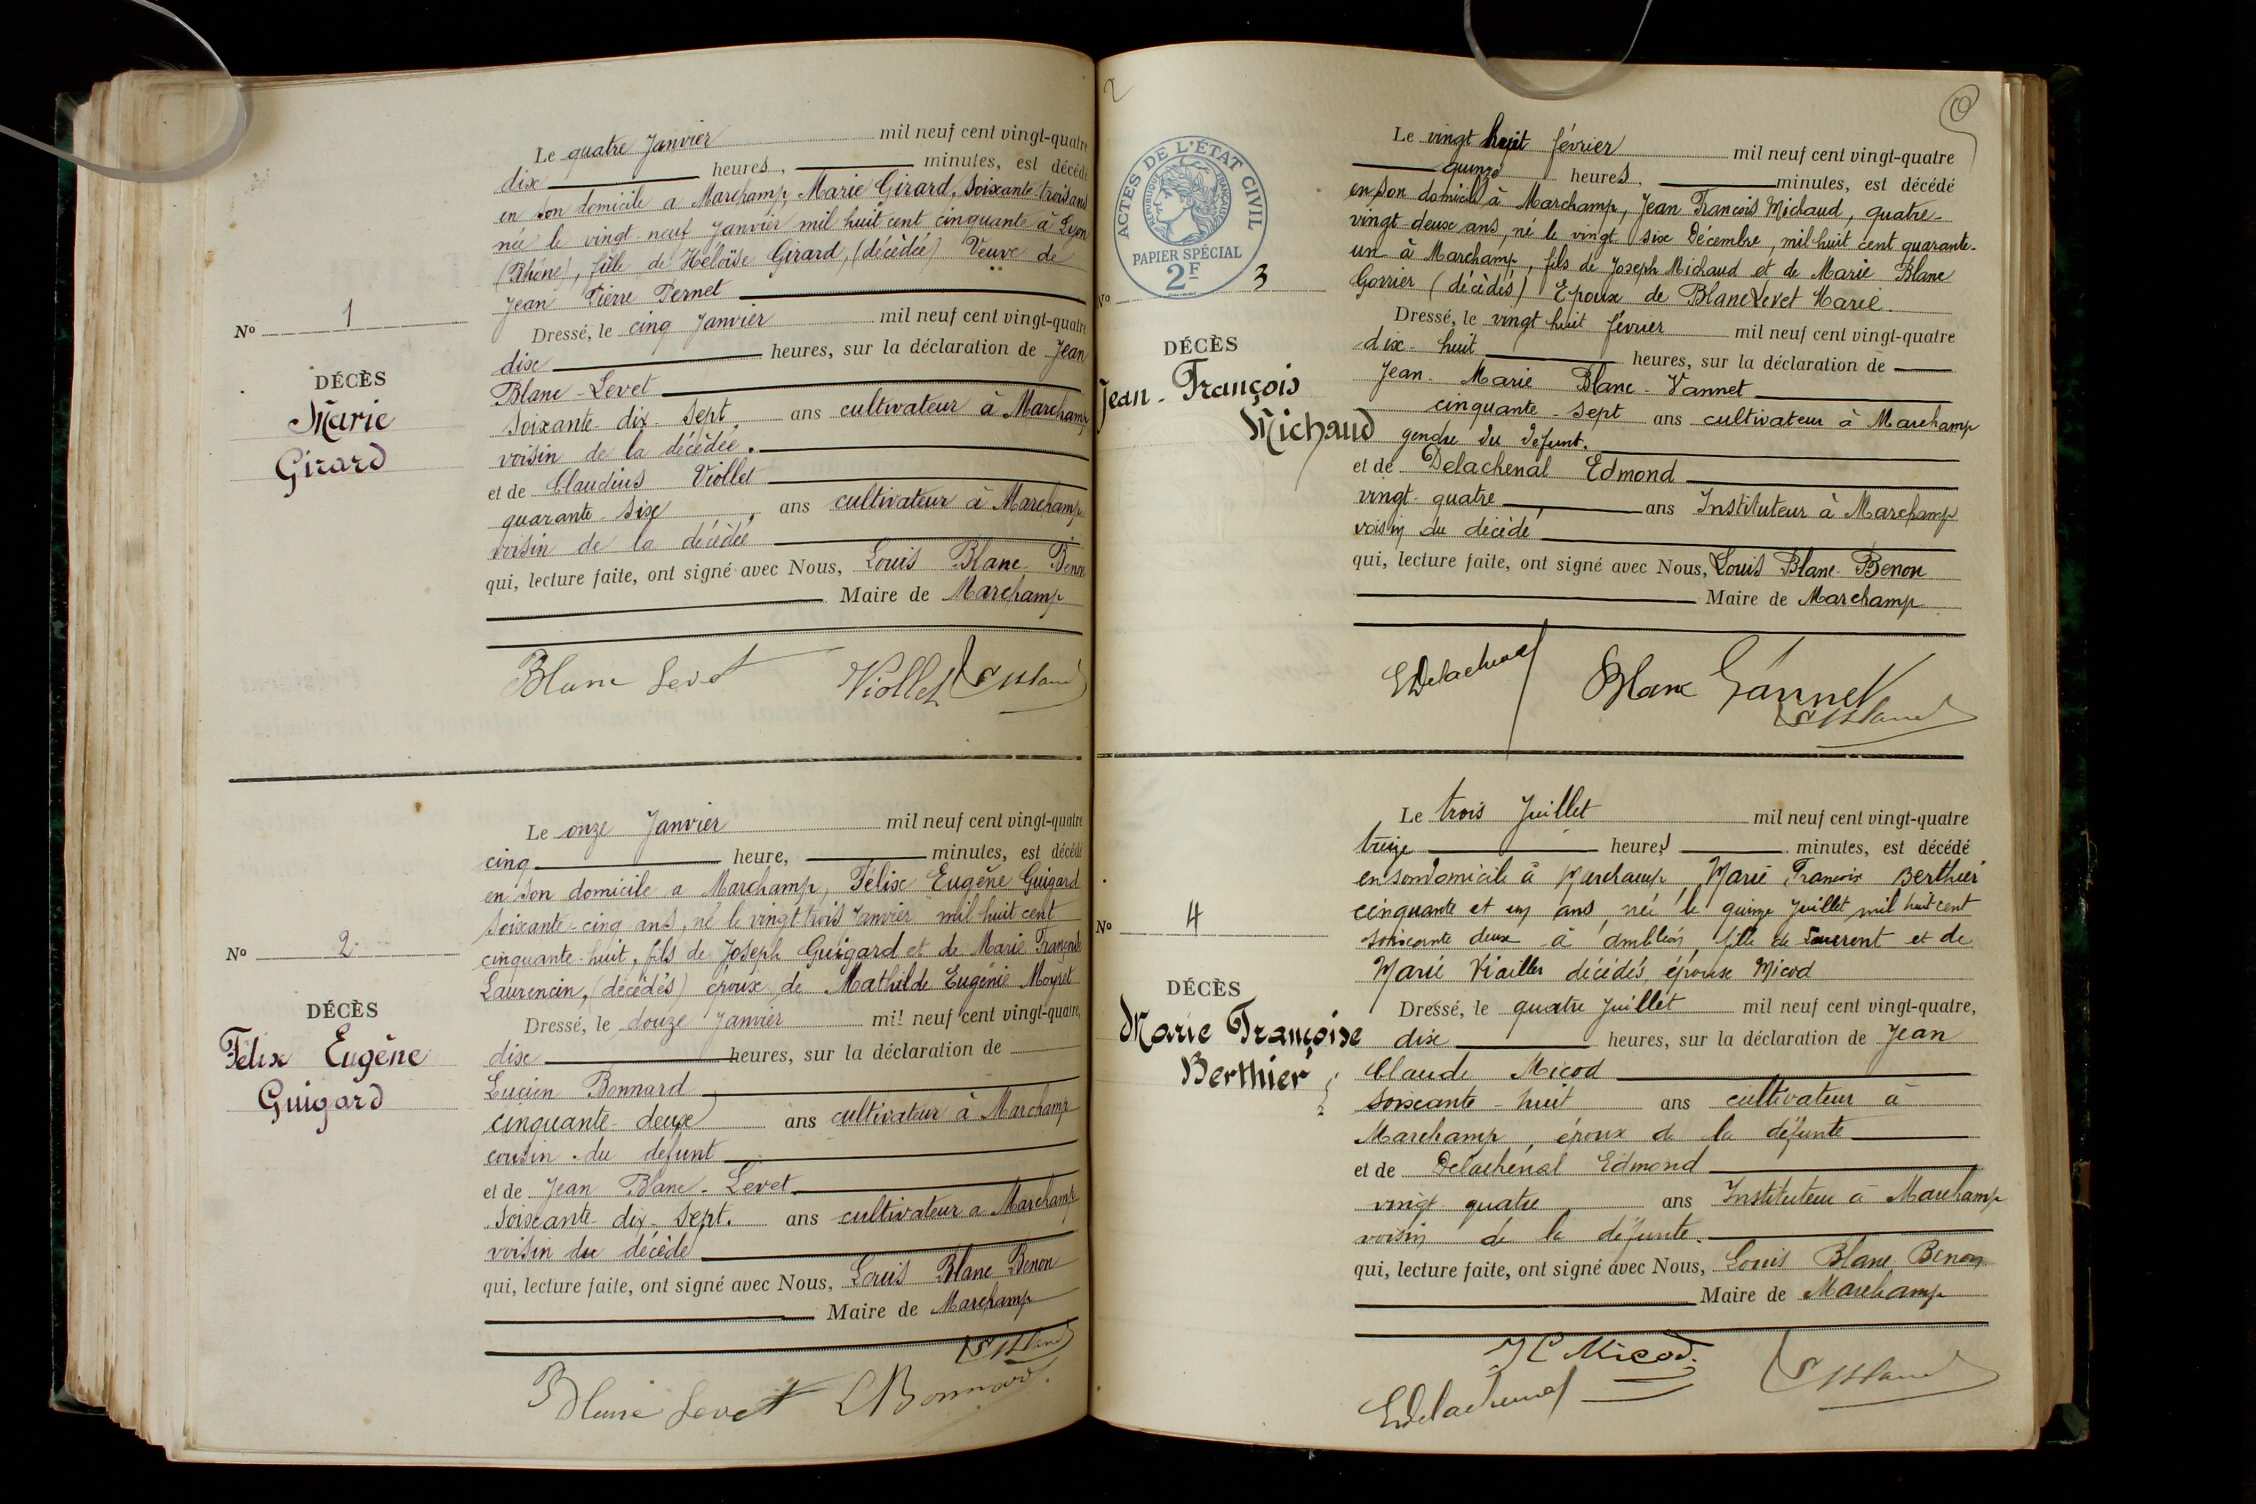 Le quatre Janvier mil neuf cent vingt-quatre
dix heures, minutes, est décédé
en son domicile a Marchamp, Marie Girard, soixante-trois ans
née le vingt-neuf Janvier mil huit cent cinquante à Lyon
(Rhône), fille de Héloïse Girard, (décédée) Veuve de
Jean Pierre Pernet
Nº 1
Dressé, le cinq Janvier mil neuf cent vingt-quatre
dix heures, sur la déclaration de Jean
Blanc-Levet
DÉCÈS
Marie
Girard
soixante-dix-sept ans cultivateur à Marchamp
voisin de la décédée.
et de Claudius Viollet
quarante-six, ans cultivateur à Marchamp
voisin de la décédée
qui, lecture faite, ont signé avec Nous, Louis Blanc-Benon
Maire de Marchamp
Blanc Levet Viollet
Le onze Janvier mil neuf cent vingt-quatre
cinq heure, minutes, est décédé
en son domicile a Marchamp, Félix Eugène Guigard
soixante-cinq ans, né le vingt trois Janvier mil huit cent
cinquante-huit, fils de Joseph Guigard et de Marie Françoise
Laurencin, (décédés) époux de Mathilde Eugénie Moyret
Nº 2
Dressé, le douze Janvier mil neuf cent vingt-quatre,
dix heures, sur la déclaration de
Lucien Bonnard
DÉCÈS
Félix Eugène
Guigard
cinquante-deux ans cultivateur à Marchamp
cousin du défunt
et de Jean Blanc-Levet
soixante-dix-sept. ans cultivateur a Marchamp
voisin du décédé
qui, lecture faite, ont signé avec Nous, Louis Blanc Benon
Maire de Marchamp
Blanc Levet LBonnard.
2
ACTES DE L'ÉTAT CIVIL
RÉPUBLIQUE FRANÇAISE
PAPIER SPÉCIAL
2F
Le vingt huit février mil neuf cent vingt-quatre
quinze heures, minutes, est décédé
en son domicile à Marchamp, Jean François Michaud, quatre-
vingt deux ans, né le vingt six Décembre, mil huit cent quarante-
un à Marchamp, fils de Joseph Michaud et de Marie Blanc
Gorrier (décédés) Epoux de Blanc Levet Marie.
Nº 3
Dressé, le vingt huit février mil neuf cent vingt-quatre
dix-huit heures, sur la déclaration de
Jean-Marie Blanc-Vannet
DÉCÈS
Jean-François
Michaud
cinquante-sept ans cultivateur à Marchamp
gendre du défunt.
et de Delachenal Edmond
vingt-quatre, ans Instituteur à Marchamp
voisin du décédé
qui, lecture faite, ont signé avec Nous, Louis Blanc-Benon
Maire de Marchamp
EDelachenal Blanc Vannet
Le trois Juillet mil neuf cent vingt-quatre
treize heures minutes, est décédé
en son domicile à Marchamp, Marie Françoise Berthier
cinquante et un ans, née le quinze Juillet mil huit cent
soixante deux à Ambléon, fille de Laurent et de
Marie Viallier décédés, épouse Micod
Nº 4
Dressé, le quatre Juillet mil neuf cent vingt-quatre,
dix heures, sur la déclaration de Jean
Claude Micod
DÉCÈS
Marie Françoise
Berthier
soixante-huit ans cultivateur à
Marchamp, époux de la défunte
et de Delachénal Edmond
vingt quatre ans Instituteur à Marchamp
voisin de la défunte.
qui, lecture faite, ont signé avec Nous, Louis Blanc Benon
Maire de Marchamp
JC Micod.
EDelachenal